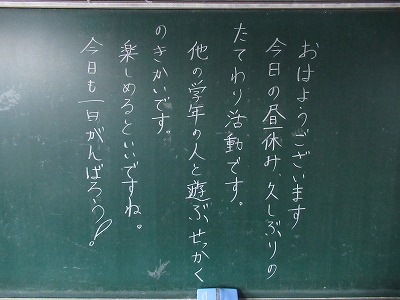 おはようございます
今日の昼休み、久しぶりの
たてわり活動です。
他の学年の人と遊ぶせっかく
のきかいです。
楽しめるといいですね。
今日も一日がんばろう!